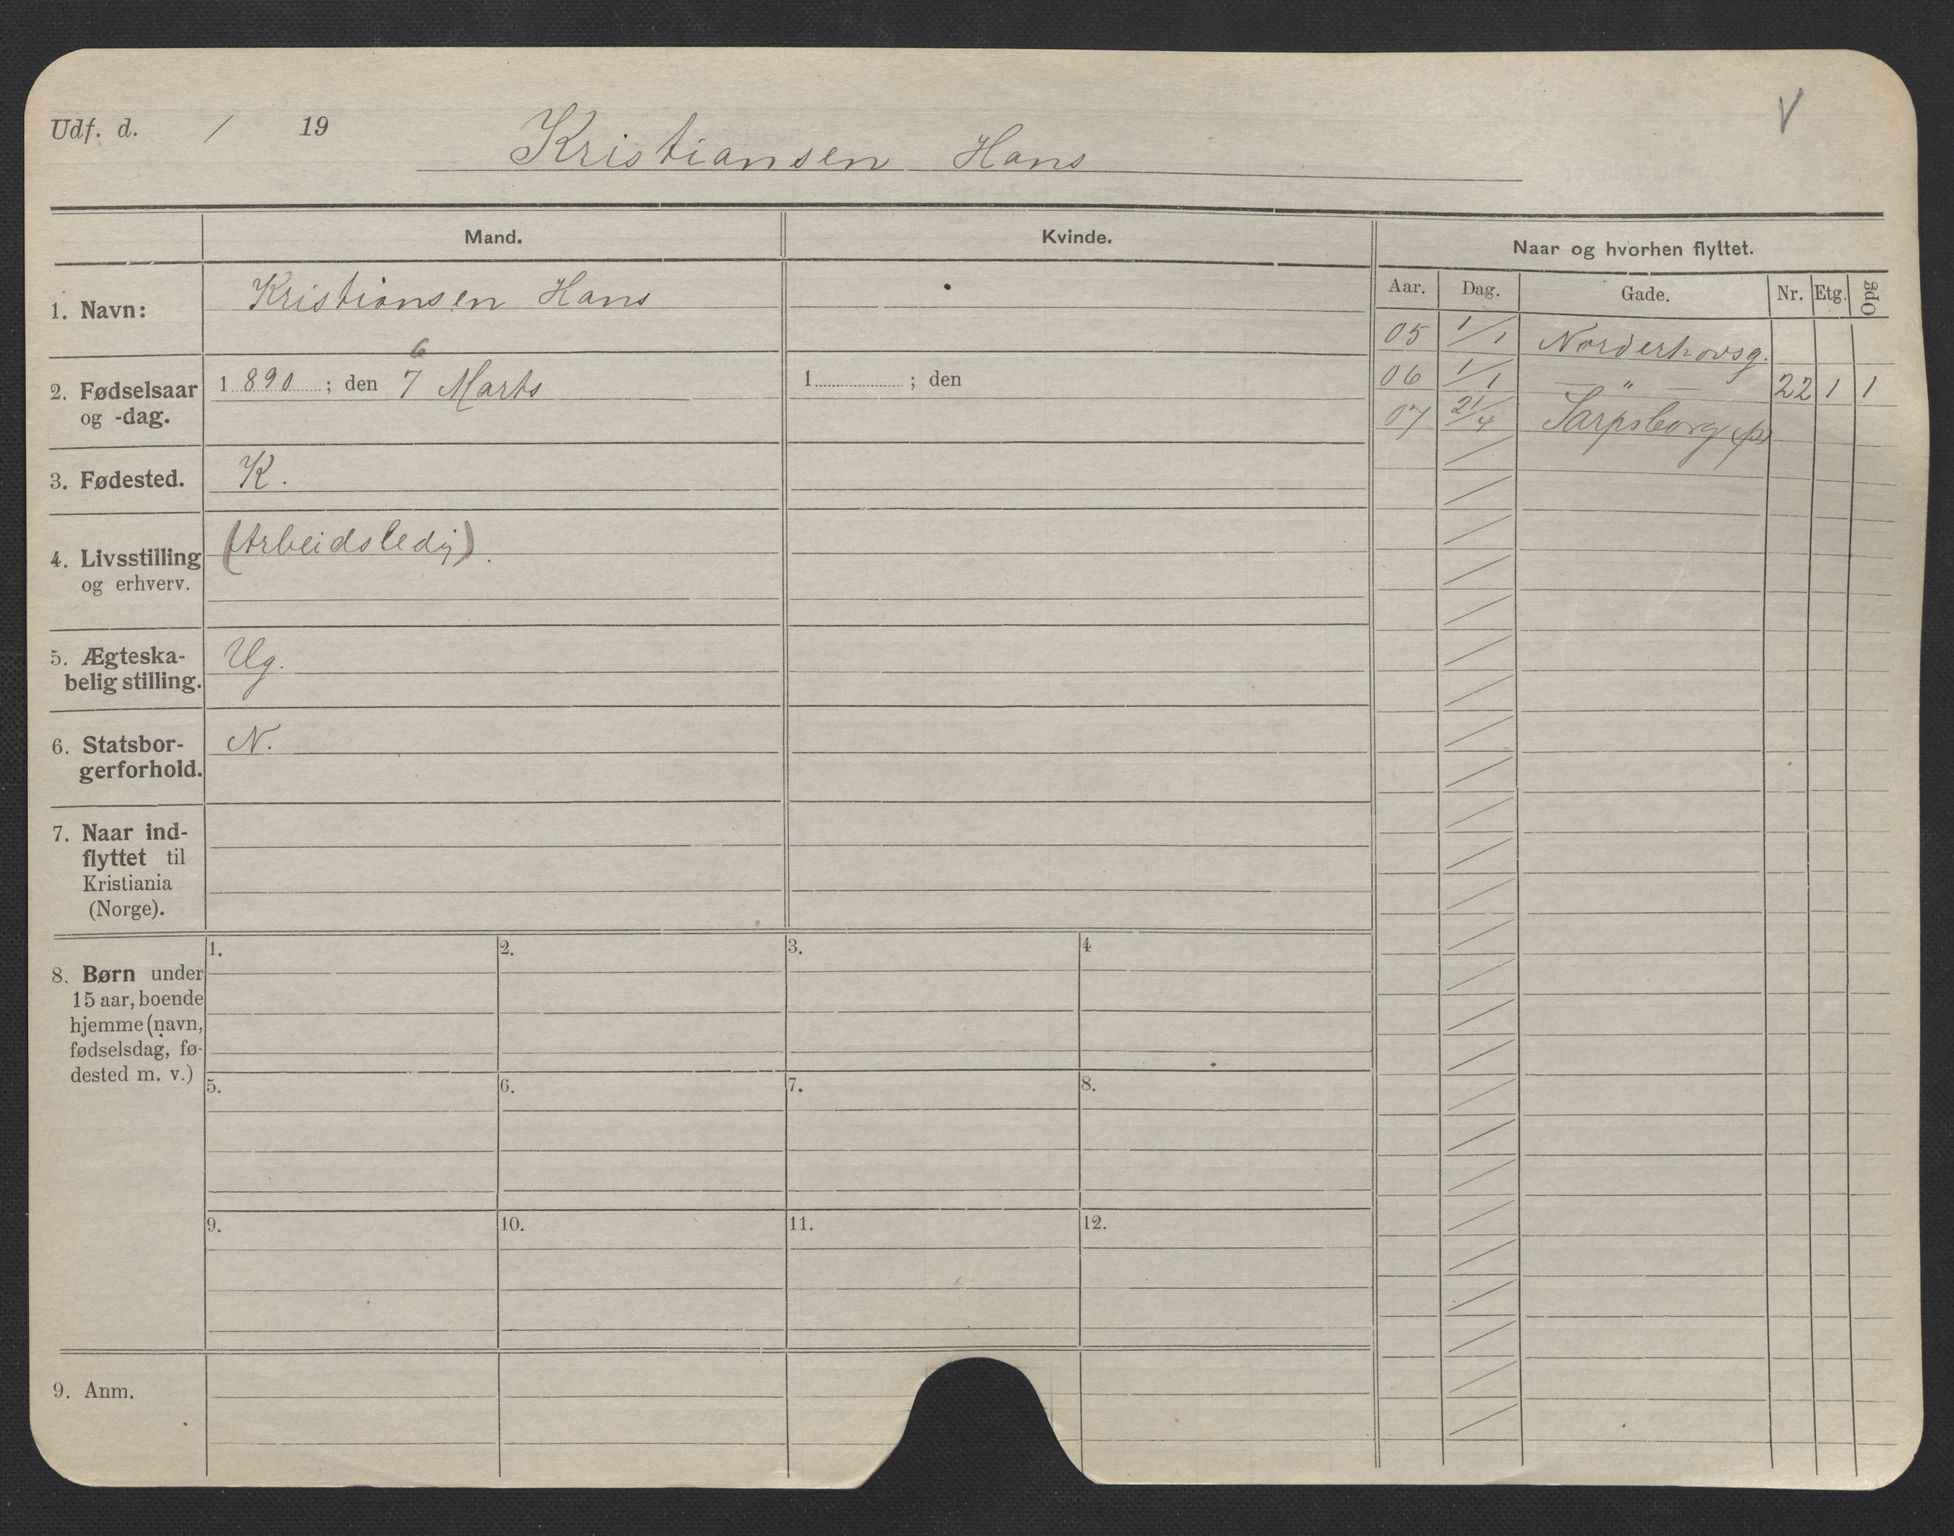 Udf. d. / 19
Kristiansen Hans
V
Mand.
Kvinde.
Naar og hvorhen flyttet.
Aar. Dag. Gade. Nr. Etg. Opg
1. Navn: Kristiansen Hans
05 1/1 Norderhovsg.
06 1/1 — " — 22 1 1
07 21/4 Sarpsborg
6
2. Fødselsaar og -dag. 1890 ; den 7 Marts
1 ; den
3. Fødested. K.
4. Livsstilling og erhverv. (Arbeidsledig).
5. Ægteska-
belig stilling. Ug.
6. Statsbor-
gerforhold. N.
7. Naar ind-
flyttet til
Kristiania
(Norge).
8. Børn under
15 aar, boende
hjemme (navn,
fødselsdag, fø-
dested m. v.)
1. 2. 3. 4
5. 6. 7. 8.
9. 10. 11. 12.
9. Anm.